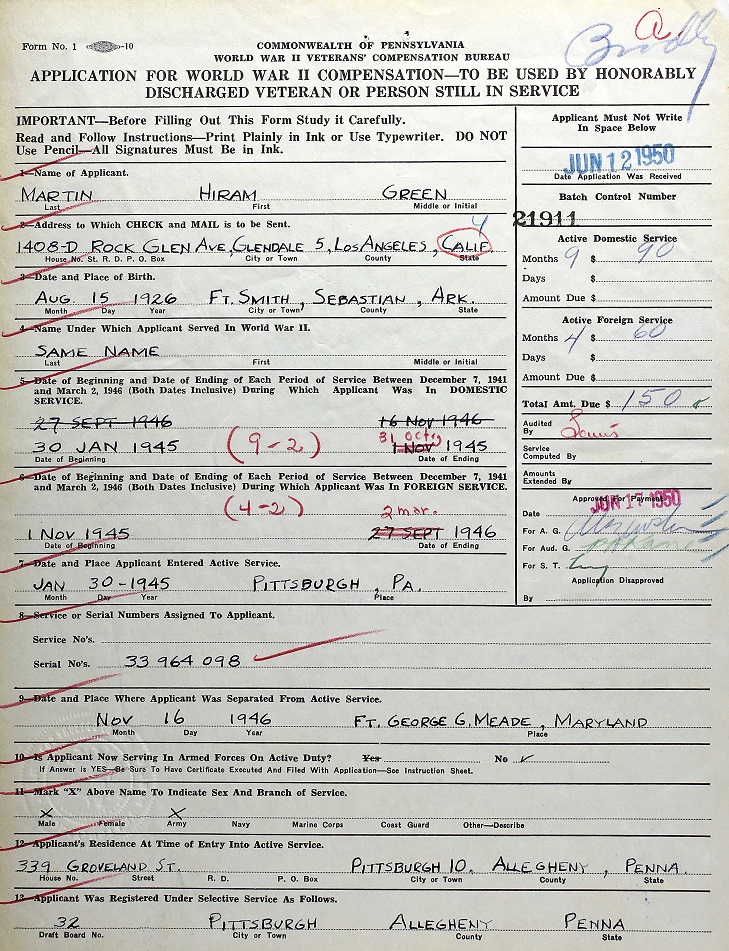 Form No. 1 -10
COMMONWEALTH OF PENNSYLVANIA
WORLD WAR II VETERANS' COMPENSATION BUREAU
APPLICATION FOR WORLD WAR II COMPENSATION—TO BE USED BY HONORABLY
DISCHARGED VETERAN OR PERSON STILL IN SERVICE
IMPORTANT—Before Filling Out This Form Study it Carefully.
Read and Follow Instructions—Print Plainly in Ink or Use Typewriter. DO NOT
Use Pencil—All Signatures Must Be in Ink.
1—Name of Applicant.
MARTIN HIRAM GREEN
Last First Middle or Initial
2—Address to Which CHECK and MAIL is to be Sent.
4
1408-D ROCK GLEN AVE, GLENDALE 5, LOS ANGELES, CALIF.
House No. St. R. D. P. O. Box City or Town County State
3—Date and Place of Birth.
AUG. 15 1926 FT. SMITH, SEBASTIAN, ARK.
Month Day Year City or Town County State
4—Name Under Which Applicant Served In World War II.
SAME NAME
Last First Middle or Initial
5—Date of Beginning and Date of Ending of Each Period of Service Between December 7, 1941
and March 2, 1946 (Both Dates Inclusive) During Which Applicant Was In DOMESTIC
SERVICE.
27 SEPT 1946 16 NOV 1946
30 JAN 1945 (9-2) 31 Oct 1 NOV 1945
Date of Beginning Date of Ending
6—Date of Beginning and Date of Ending of Each Period of Service Between December 7, 1941
and March 2, 1946 (Both Dates Inclusive) During Which Applicant Was In FOREIGN SERVICE.
(4-2) 2 mar.
1 NOV 1945 27 SEPT 1946
Date of Beginning Date of Ending
7—Date and Place Applicant Entered Active Service.
JAN 30-1945 PITTSBURGH, PA.
Month Day Year Place
8—Service or Serial Numbers Assigned To Applicant.
Service No's.
Serial No's. 33 964 098
9—Date and Place Where Applicant Was Separated From Active Service.
NOV 16 1946 FT. GEORGE G. MEADE, MARYLAND
Month Day Year Place
10—Is Applicant Now Serving In Armed Forces On Active Duty? Yes No ✓
If Answer is YES—Be Sure To Have Certificate Executed And Filed With Application—See Instruction Sheet.
11—Mark "X" Above Name To Indicate Sex and Branch of Service.
X X
Male Female Army Navy Marine Corps Coast Guard Other—Describe
12—Applicant's Residence At Time of Entry Into Active Service.
339 GROVELAND ST. PITTSBURGH 10, ALLEGHENY, PENNA.
House No. Street R. D. P. O. Box City or Town County State
13—Applicant Was Registered Under Selective Service As Follows.
32 PITTSBURGH ALLEGHENY PENNA
Draft Board No. City or Town County State
a.
Applicant Must Not Write
In Space Below
JUN 12 1950
Date Application Was Received
Batch Control Number
21911
Active Domestic Service
Months 9 $ 90
Days $
Amount Due $
Active Foreign Service
Months 4 $ 60
Days $
Amount Due $
Total Amt. Due $ 150
Audited
By
Service
Computed By
Amounts
Extended By
Approved For Payment
Date JUN 17 1950
For A. G.
For Aud. G.
For S. T.
Application Disapproved
By